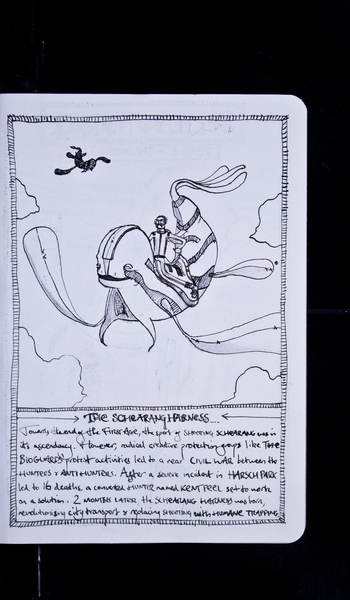 THE SCHRARANG HARNESS...
Towards the end of the FIRST AGE, the sport of SHOOTING SCHRARANG was in
its ascendancy. However, radical creature protection groups like THE
BIOGUARD's protest activities led to a near CIVIL WAR between the
HUNTERS & ANTIHUNTERS. After a severe incident in HARSCH PARK
led to 16 deaths, a converted HUNTER named KENT FEEL set to work
on a solution. 2 MONTHS LATER, the SCHRARANG HARNESS was born,
revolutionising city transport & replacing SHOOTING with HUMANE TRAPPING